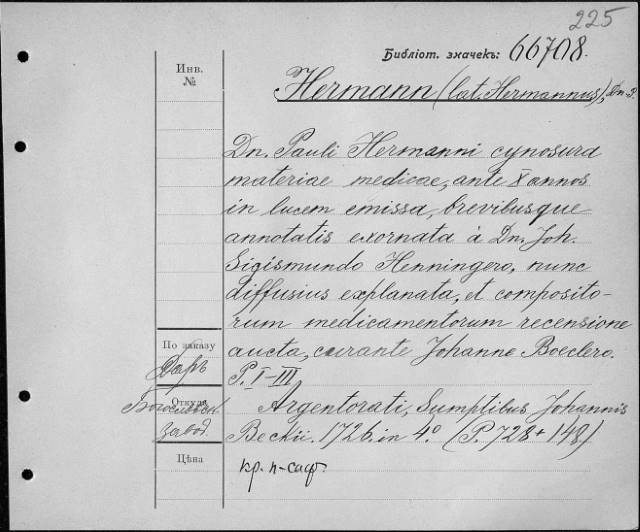 225
Библіот. значекъ: 66708.
Инв.
№
Hermann (lat. Hermannus), Dn. P.
Dn. Pauli Hermanni cynosura
materiae medicae, ante X annos
in lucem emissa, brevibusque
annotatis exornata à Dn. Joh.
Sigismundo Henningero, nunc
diffusius explanata, et composito-
rum medicamentorum recensione
aucta, curante Johanne Boeclero.
P. I-III
По заказу
Даръ
Откуда
Богословск.
завод.
Argentorati, Sumptibus Johannis
Beckii. 1726. in 4º. (P. 728 + 148)
Цѣна
кр. п-саф.